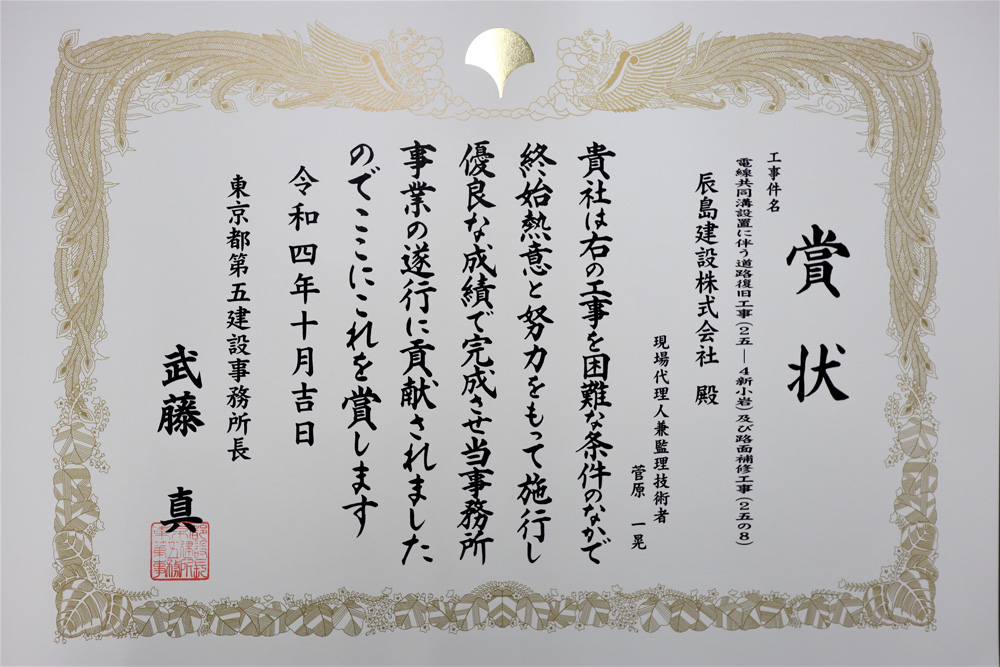 賞状
工事件名
電線共同溝設置に伴う道路復旧工事(25―4新小岩)及び路面補修工事(25の8)
辰島建設株式会社 殿
現場代理人兼監理技術者
菅原 一晃
貴社は右の工事を困難な条件のなかで
終始熱意と努力をもって施行し
優良な成績で完成させ当事務所
事業の遂行に貢献されました
のでここにこれを賞します
令和四年十月吉日
東京都第五建設事務所長
武藤 真